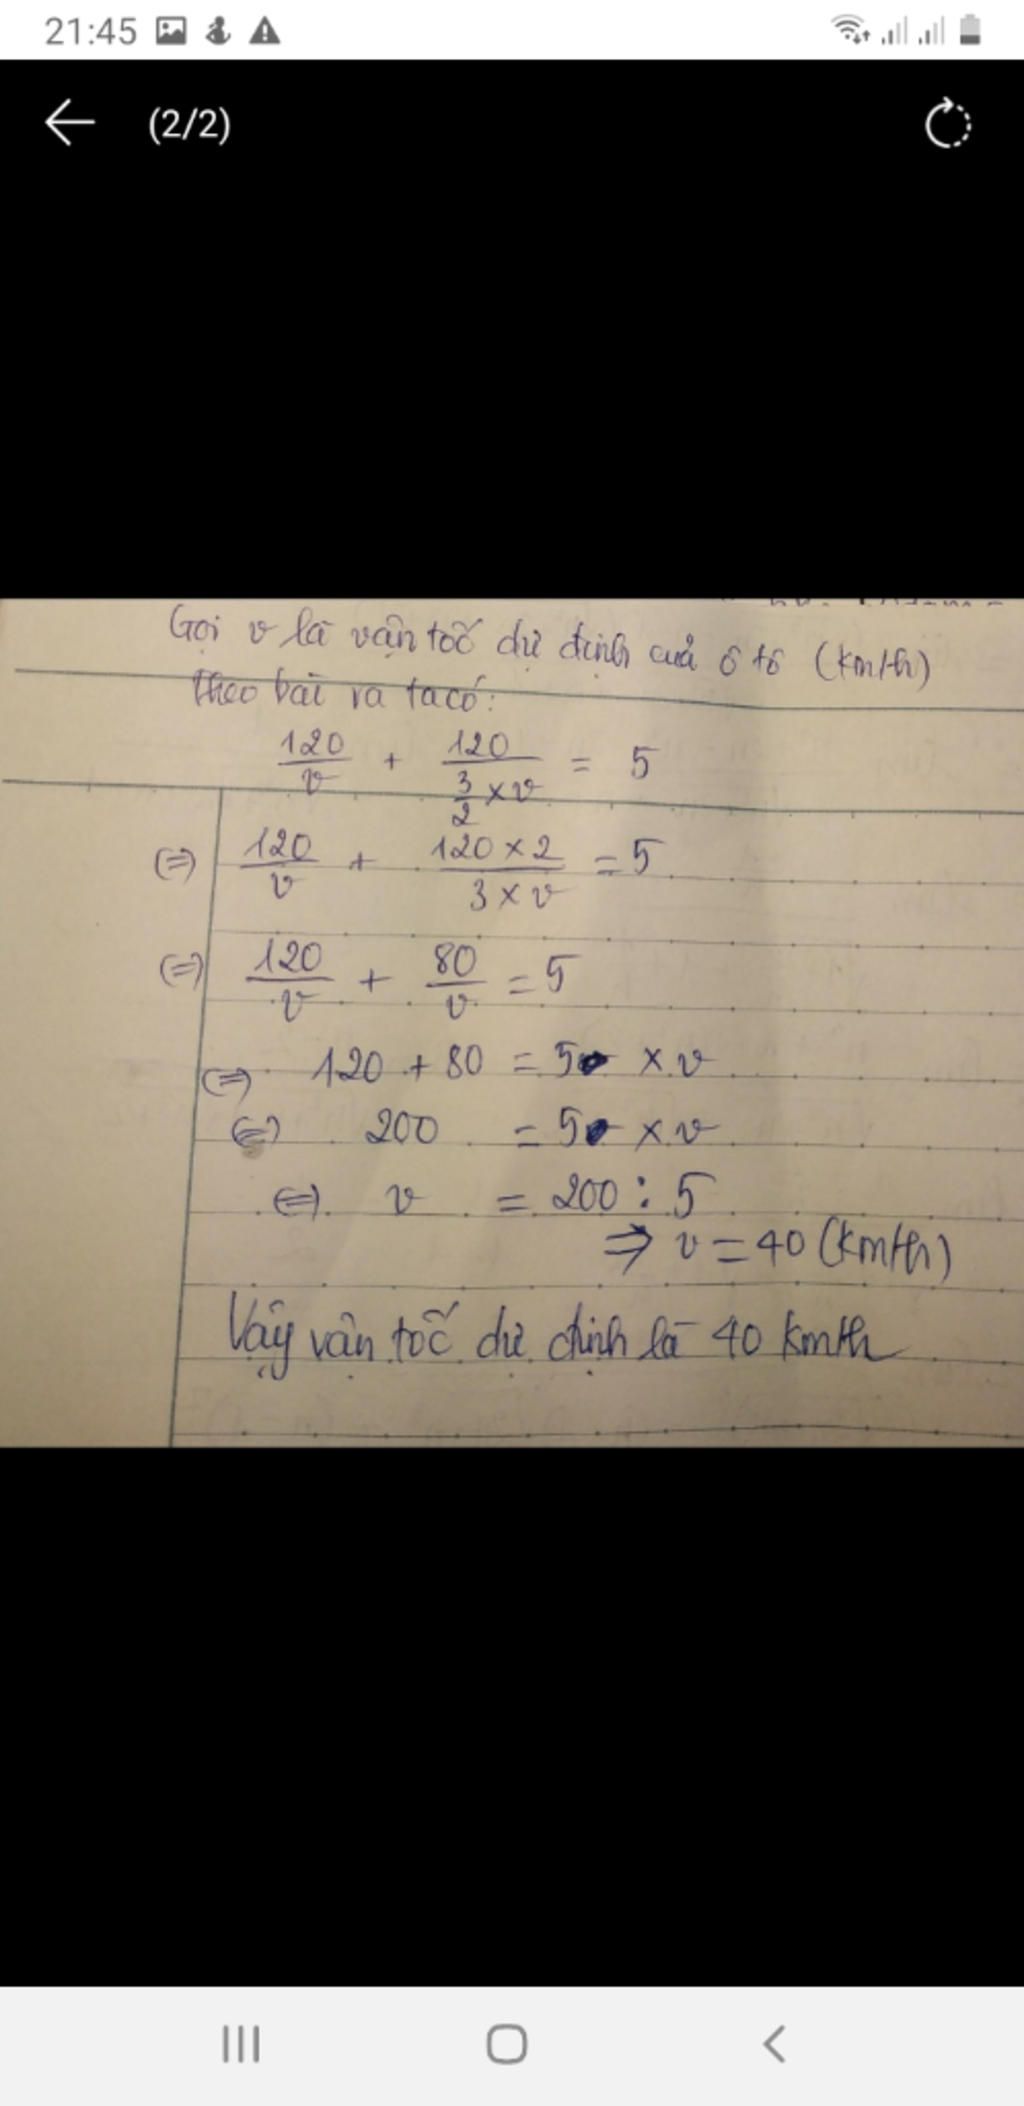 21:45
(2/2)
Gọi v là vận tốc dự định của ô tô (km/h)
Theo bài ra ta có:
120/v + 120/(3/2 × v) = 5
(=) 120/v + (120 × 2)/(3 × v) = 5
(=) 120/v + 80/v = 5
(=) 120 + 80 = 5 × v
(=) 200 = 5 × v
(=) v = 200 : 5
=> v = 40 (km/h)
Vậy vận tốc dự định là 40 km/h